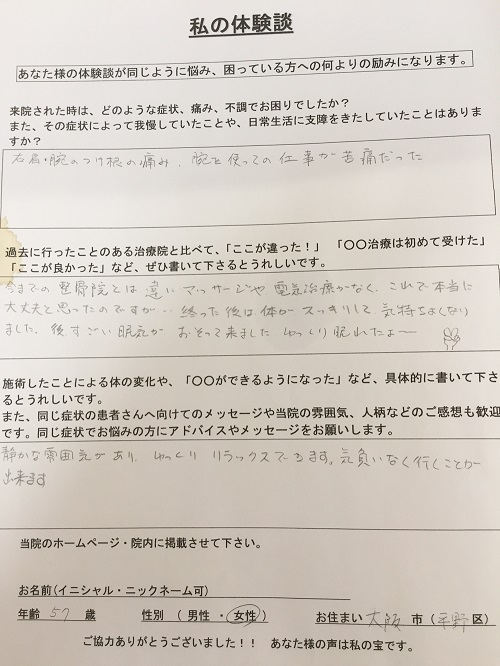 私の体験談
あなた様の体験談が同じように悩み、困っている方への何よりの励みになります。
来院された時は、どのような症状、痛み、不調でお困りでしたか？
また、その症状によって我慢していたことや、日常生活に支障をきたしていたことはありま
すか？
右肩・腕のつけ根の痛み、腕を使っての仕事が苦痛だった
過去に行ったことのある治療院と比べて、「ここが違った！」「〇〇治療は初めて受けた」
「ここが良かった」など、ぜひ書いて下さるとうれしいです。
今までの整骨院とは違いマッサージや電気治療がなく、これで本当に
大丈夫と思ったのですが‥終った後は体がスッキリして気持ちよくなり
ました。後すごい眠気がおそって来ました ゆっくり眠れたよ〜
施術したことによる体の変化や、「〇〇ができるようになった」など、具体的に書いて下さ
るとうれしいです。
また、同じ症状の患者さんへ向けてのメッセージや当院の雰囲気、人柄などのご感想も歓迎
です。同じ症状でお悩みの方にアドバイスやメッセージをお願いします。
静かな雰囲気があり、ゆっくりリラックスできます。気負いなく行くことが
出来ます
当院のホームページ・院内に掲載させて下さい。
お名前(イニシャル・ニックネーム可)
年齢 57 歳 性別 （ 男性 ・ 女性 ） お住まい 大阪 市（ 平野 区）
ご協力ありがとうございました！！ あなた様の声は私の宝です。